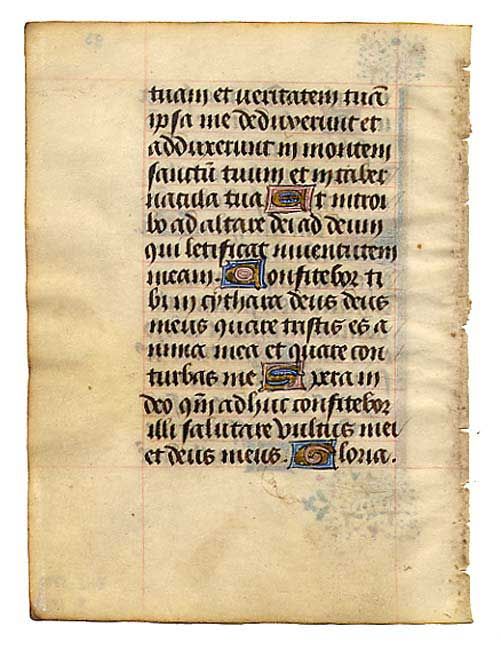 tuam et veritatem tuā
ipsa me deduxerunt et
adduxerunt in montem
sanctū tuum et in taber
nacula tua. Et introi
bo ad altare dei ad deum
qui letificat iuventutem
meam. Confitebor ti
bi in cythara deus deus
meus quare tristis es a
nima mea et quare con
turbas me Spera in
deo qm̄ adhuc confitebor
illi salutare vultus mei
et deus meus. Gloria.